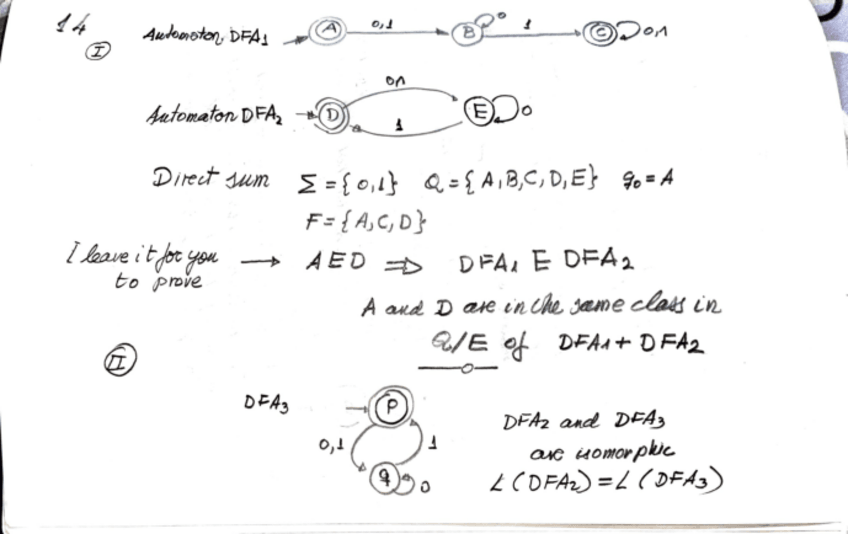 14
I Automaton, DFA1 A 0,1 B 0 1 C 0,1
0,1
Automaton DFA2 D E 0
1
Direct sum Σ = {0,1} Q = {A,B,C,D,E} q0 = A
F = {A,C,D}
I leave it for you → AED ⇒ DFA1 E DFA2
to prove
A and D are in the same class in
Q/E of DFA1 + DFA2
II
DFA3 P
DFA2 and DFA3
0,1 1 are isomorphic
q 0 L(DFA2) = L(DFA3)